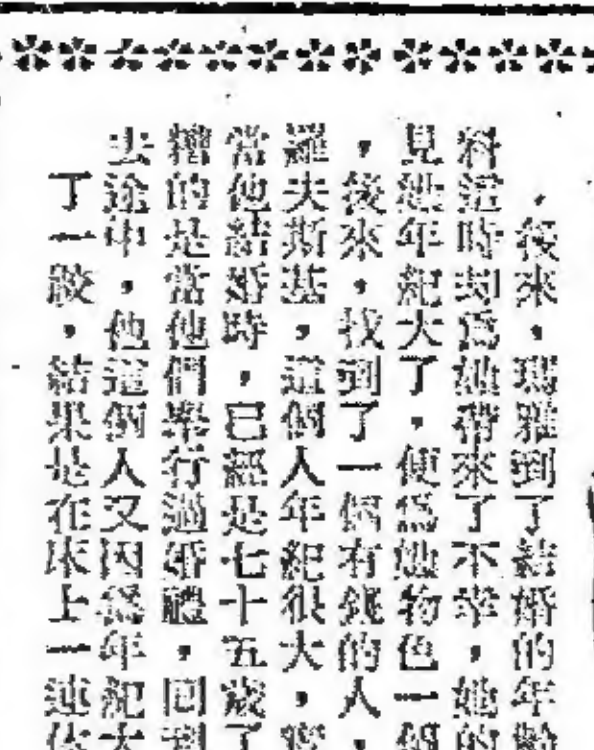 後來,瑪雅到了結婚的年齡
科這時却爲她帶來了不幸,她的
見她年紀大了,便爲她物色一個
,後來,找到了一個有錢的人,
羅夫斯基,這個人年紀很大,
當他結婚時,已經是七十五歲了
糟的是當他們舉行過婚禮,回到
去途中,他這個人又因爲年紀大
了一跤,結果是在床上一連